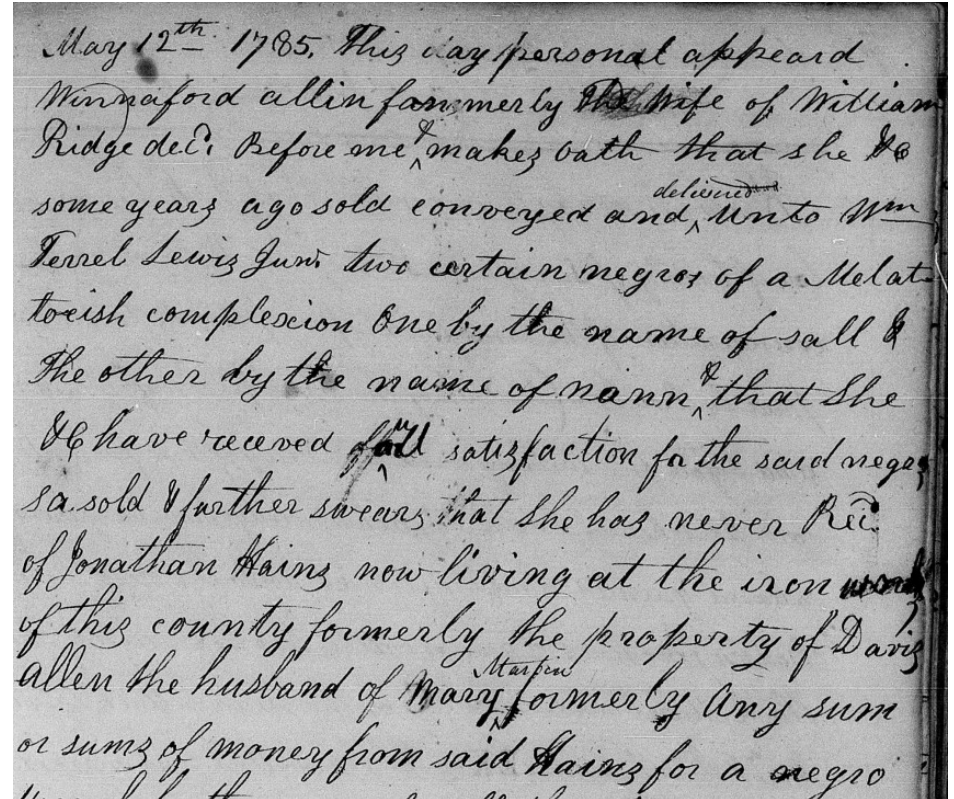 May 12th 1785. This day personal appeard
Winnaford allin formmerly the Wife of William
Ridge decd. Before me & makes oath that she
some years ago sold conveyed and delivered Unto Wm
Terrel Lewis Junr. two certain negros of a Melat
toeish complexion One by the name of sall &
The other by the name of nann & that She
have receved full satisfaction for the said negros
so sold & further swears that She has never Recd.
of Jonathan Hains now living at the iron works
of this county formerly the property of Davis
allen the husband of Mary Martin formerly Any sum
or sums of money from said Hains for a negro